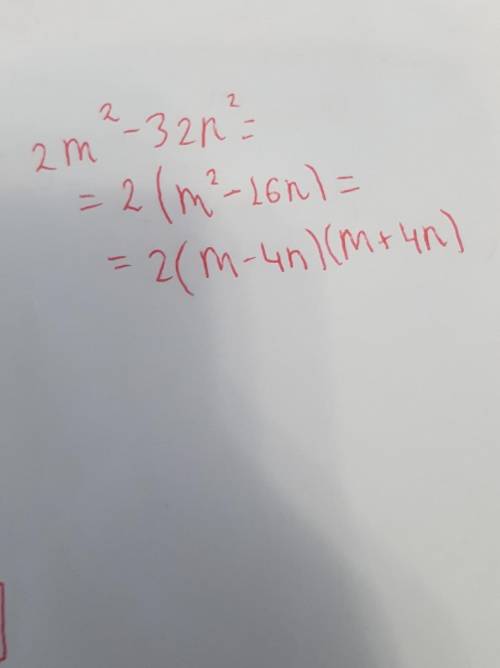 2m² - 32n² =
= 2(m² - 16n) =
= 2(m - 4n)(m + 4n)